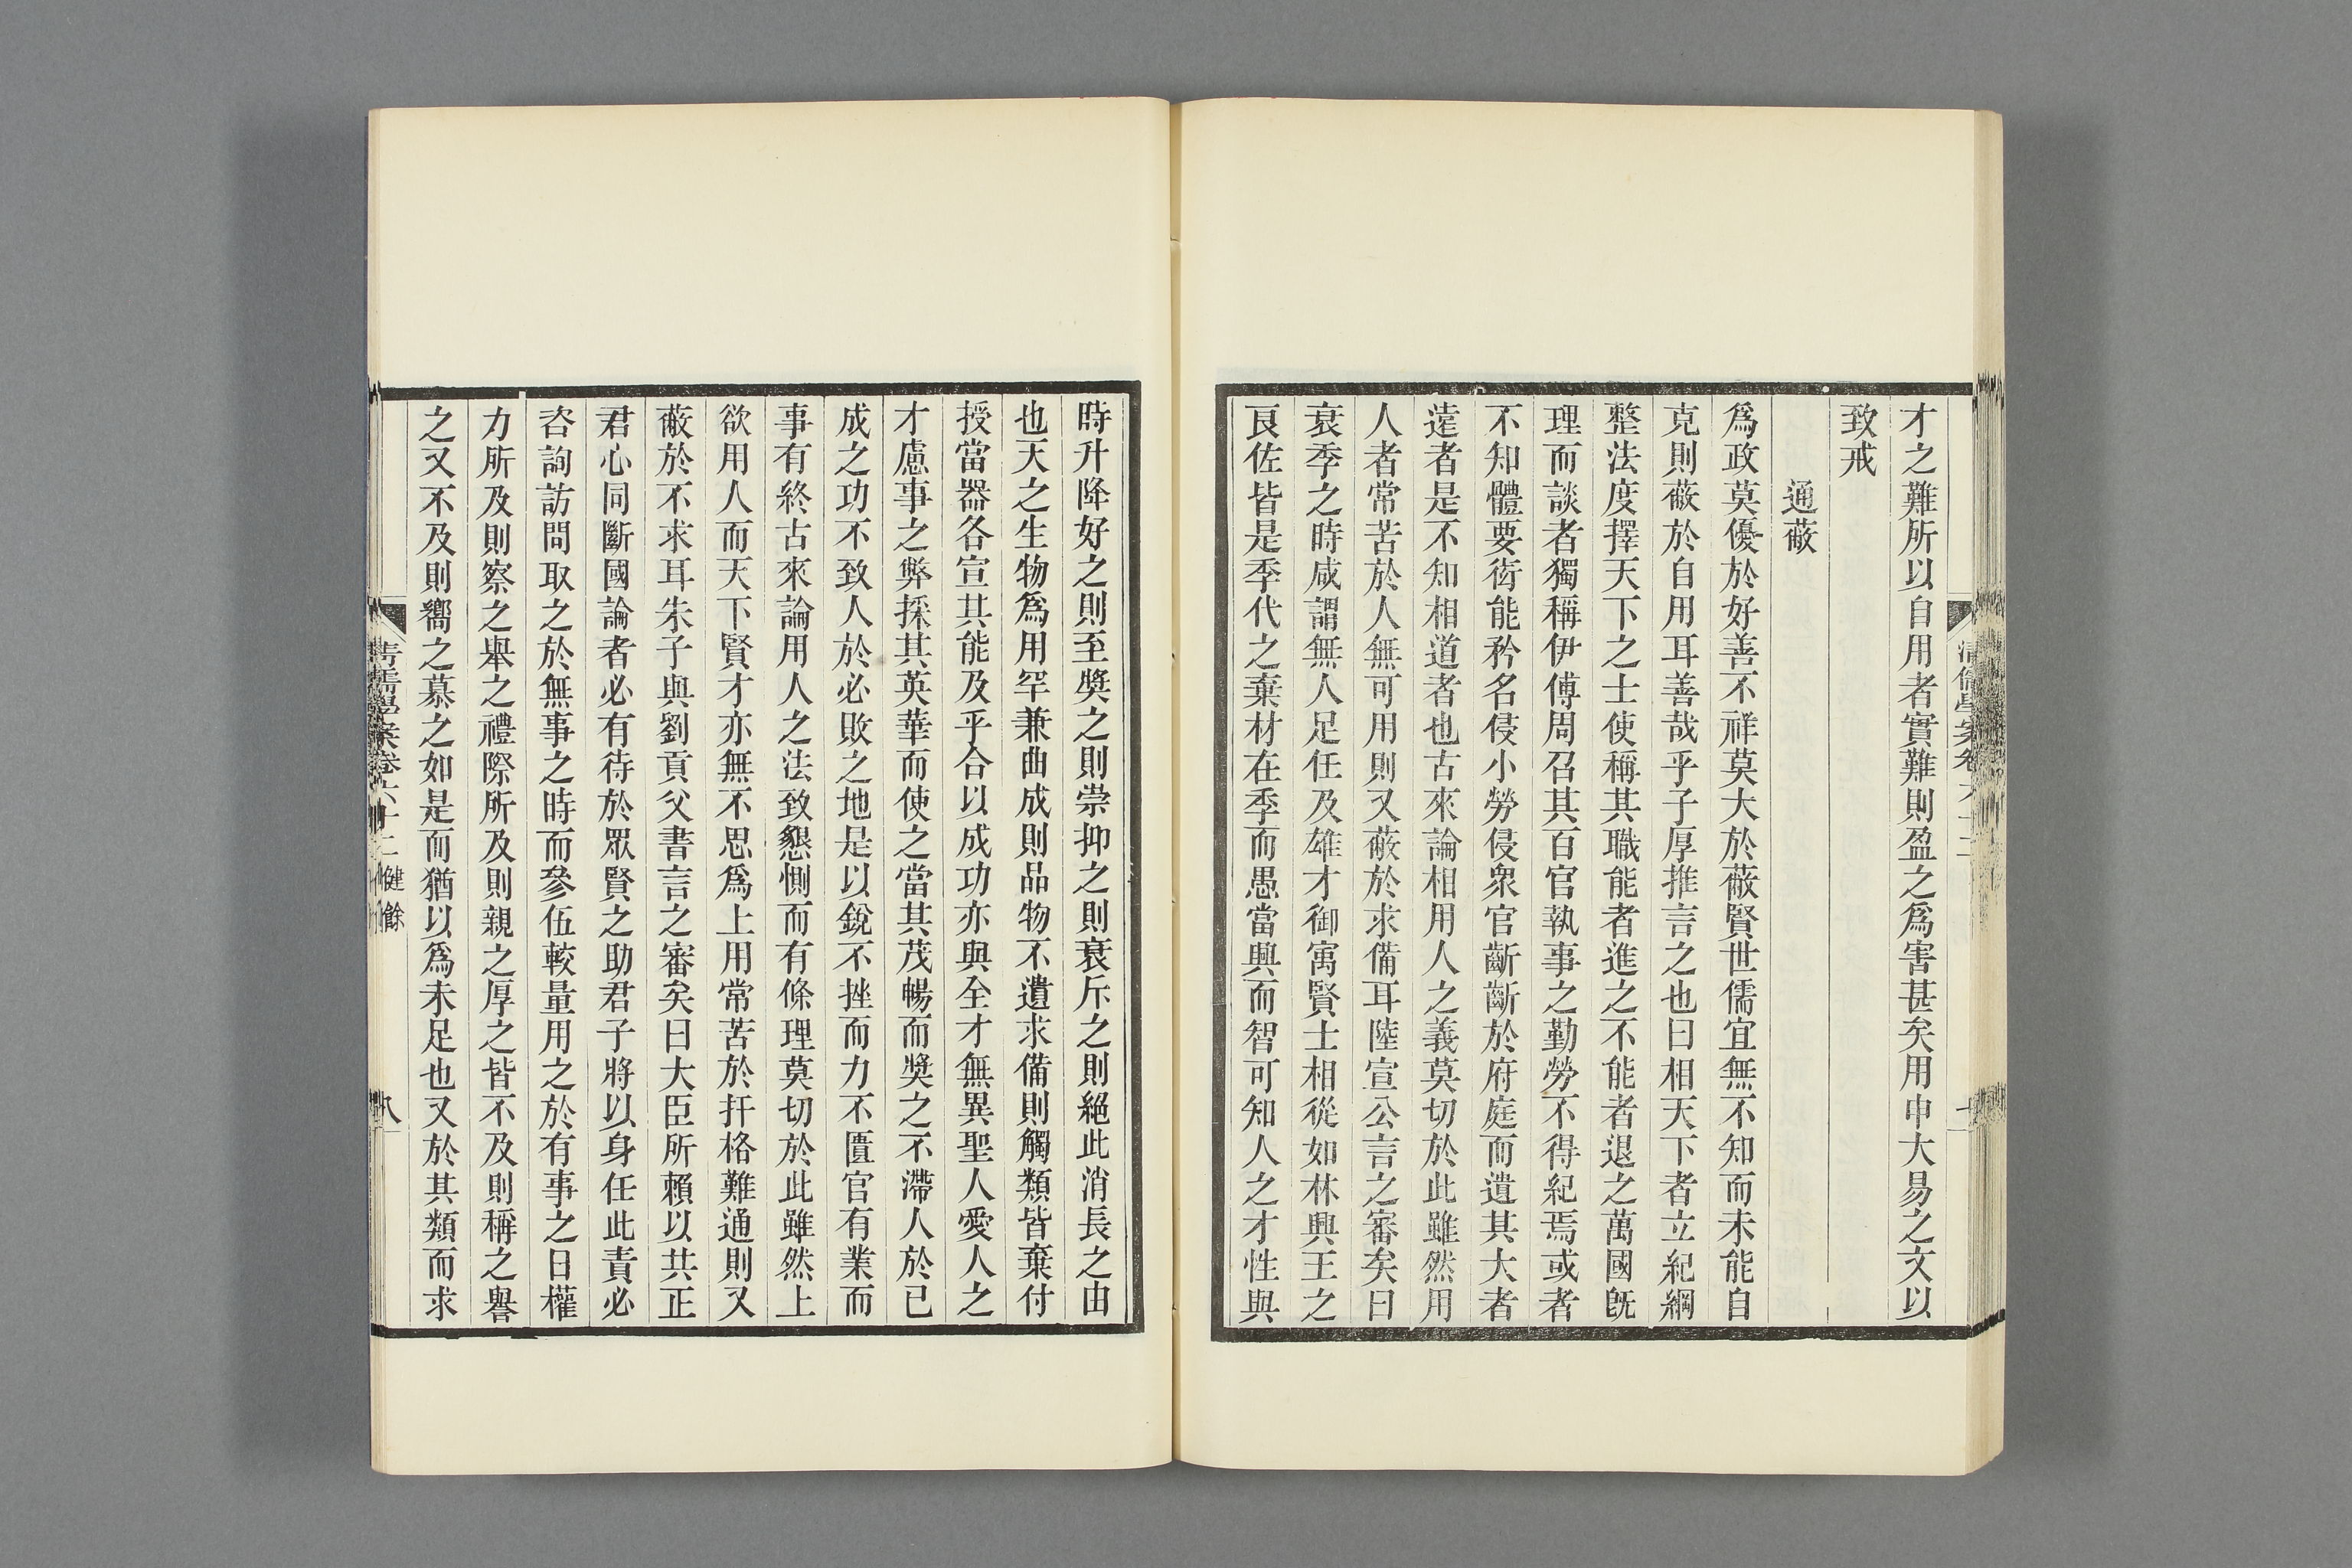 才之難所以自用者實難則盈之爲害甚矣用申大易之文以
致戒
通蔽
爲政莫優於好善不祥莫大於蔽賢世儒宜無不知而未能自
克則蔽於自用耳善哉乎子厚推言之也曰相天下者立紀綱
整法度擇天下之士使稱其職能者進之不能者退之萬國旣
理而談者獨稱伊傅周召其百官執事之勤勞不得紀焉或者
不知體要衒能矜名侵小勞侵衆官齗齗於府庭而遺其大者
遠者是不知相道者也古來論相用人之義莫切於此雖然用
人者常苦於人無可用則又蔽於求備耳陸宣公言之審矣曰
衰季之時咸謂無人足任及雄才御寓賢士相從如林興王之
良佐皆是季代之棄材在季而愚當興而智可知人之才性與
時升降好之則至獎之則崇抑之則衰斥之則絕此消長之由
也天之生物爲用罕兼曲成則品物不遺求備則觸類皆棄付
授當器各宣其能及乎合以成功亦與全才無異聖人愛人之
才慮事之弊採其英華而使之當其茂暢而獎之不滯人於已
成之功不致人於必敗之地是以銳不挫而力不匱官有業而
事有終古來論用人之法致懇惻而有條理莫切於此雖然上
欲用人而天下賢才亦無不思爲上用常苦於扞格難通則又
蔽於不求耳朱子與劉貢父書言之審矣曰大臣所賴以共正
君心同斷國論者必有待於眾賢之助君子將以身任此責必
咨詢訪問取之於無事之時而參伍較量用之於有事之日權
力所及則察之舉之禮際所及則親之厚之皆不及則稱之譽
之又不及則嚮之慕之如是而猶以爲未足也又於其類而求
清儒學案卷六十二 健餘
八